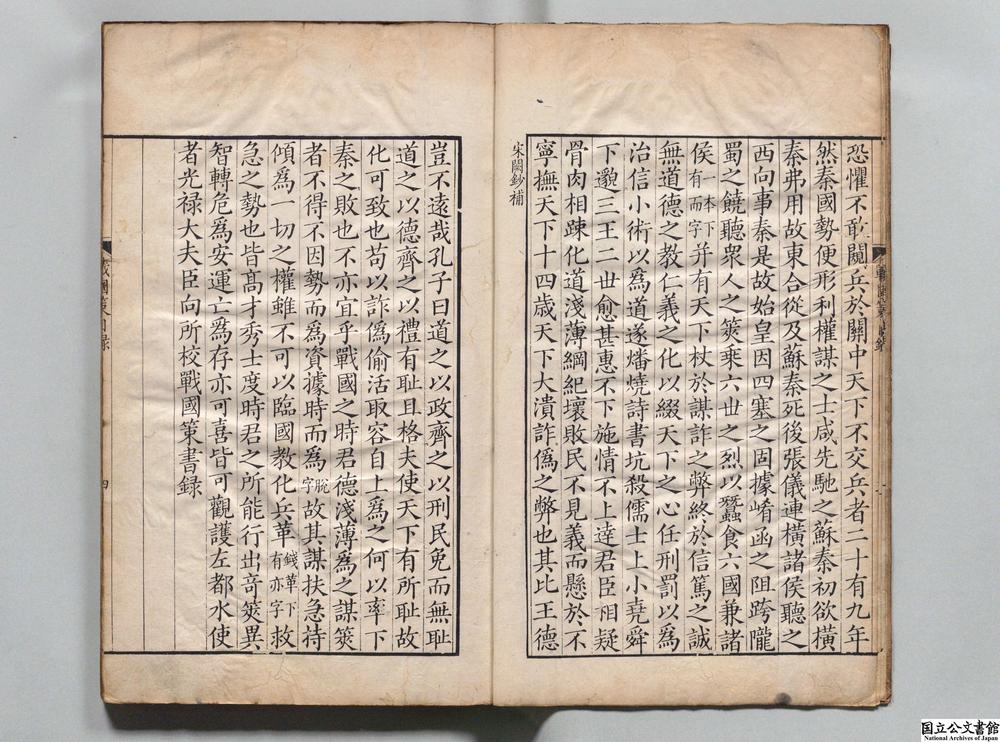 恐懼不敢闚兵於關中天下不交兵者二十有九年
然秦國勢便形利權謀之士咸先馳之蘇秦初欲橫
秦弗用故東合從及蘇秦死後張儀連橫諸侯聽之
西向事秦是故始皇因四塞之固據崤函之阻跨隴
蜀之饒聽衆人之筴乘六丗之烈以蠶食六國兼諸
侯一本下有而字并有天下杖於謀詐之弊終於信篤之誠
無道德之教仁義之化以綴天下之心任刑罰以爲
治信小術以爲道遂燔燒詩書坑殺儒士上小堯舜
下邈三王二世愈甚惠不下施情不上達君臣相疑
骨肉相踈化道淺薄綱紀壞敗民不見義而懸於不
寧撫天下十四歳天下大潰詐僞之弊也其比王德
宋闕鈔補
豈不遠哉孔子曰道之以政齊之以刑民免而無恥
道之以德齊之以禮有恥且格夫使天下有所恥故
化可致也苟以詐僞偷活取容自上爲之何以率下
秦之敗也不亦宜乎戰國之時君德淺薄爲之謀筴
者不得不因勢而爲資據時而爲脫字故其謀扶急持
傾爲一切之權雖不可以臨國教化兵革錢革下有亦字救
急之勢也皆髙才秀士度時君之所能行出竒筴異
智轉危爲安運亡爲存亦可喜皆可觀護左都水使
者光禄大夫臣向所校戰國策書録
戰國策目録
四
国立公文書館
National Archives of Japan